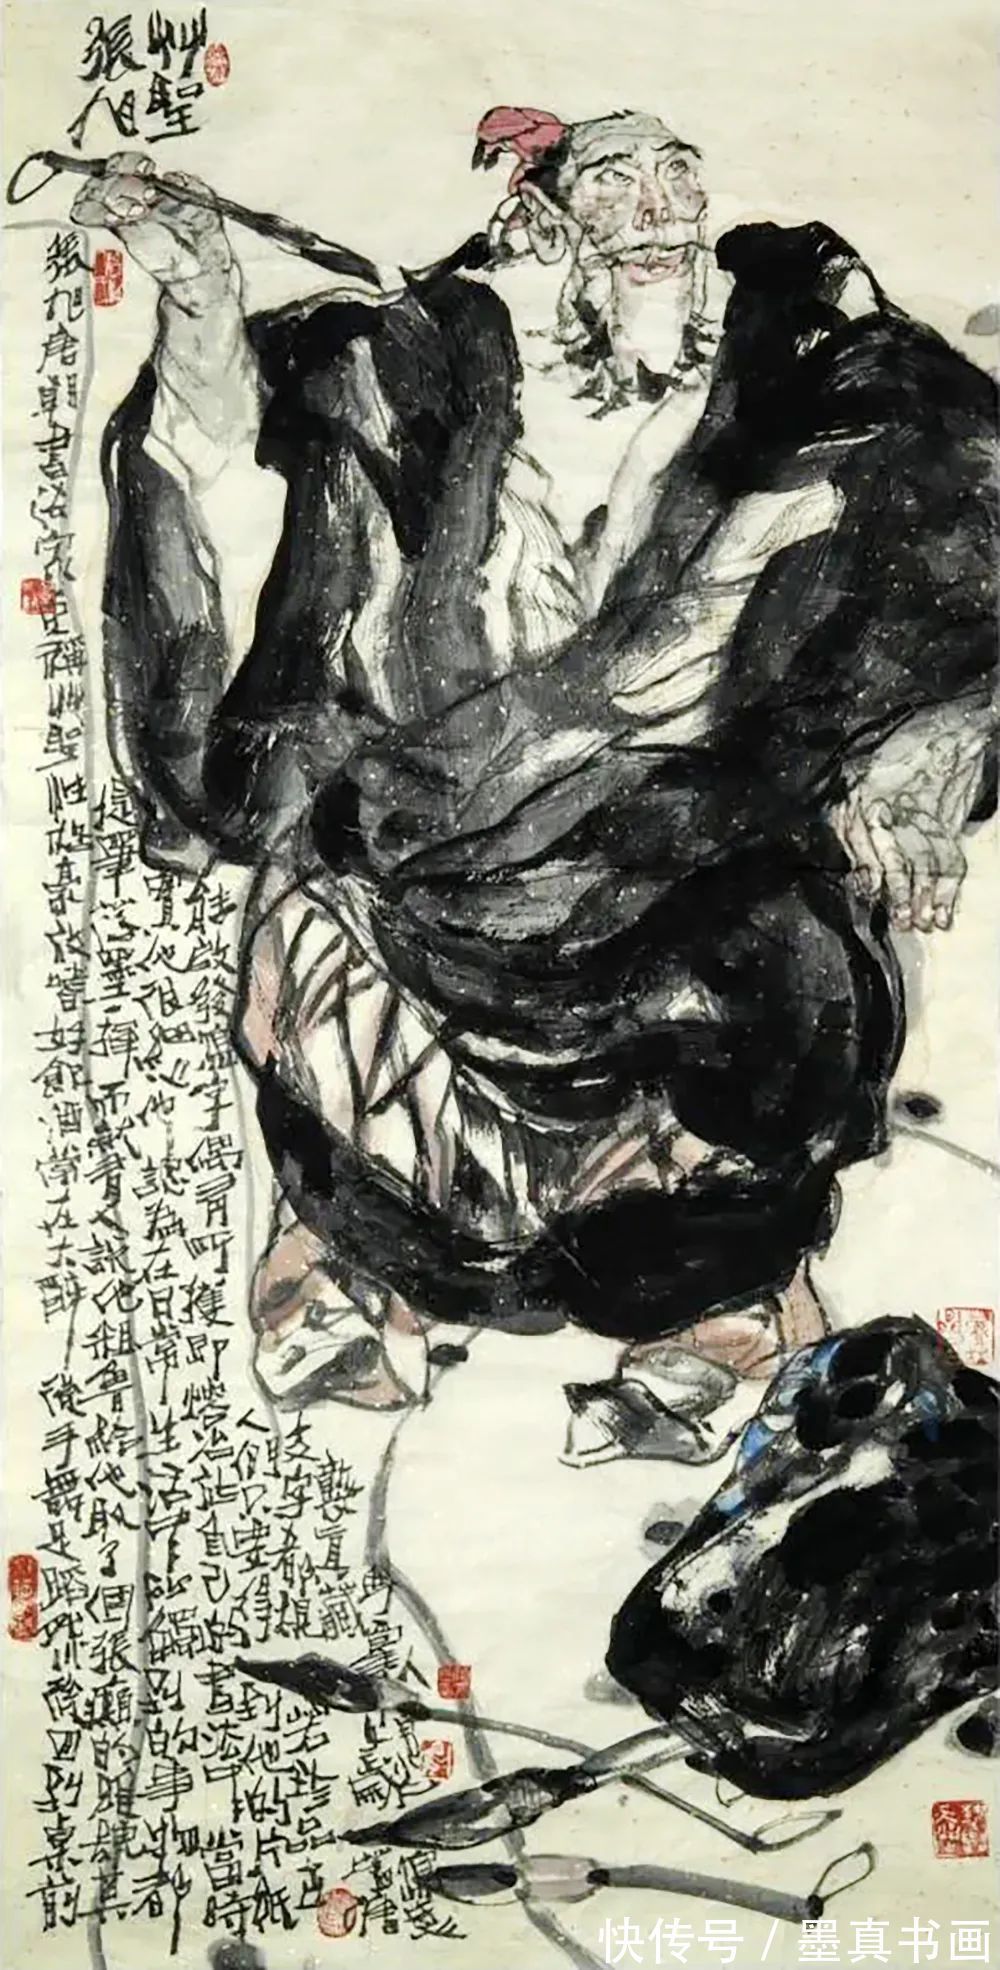 艸聖
張旭
張旭唐朝書法家史稱艸聖性格豪放嗜好飲酒常在大醉後手舞足蹈然後回到桌前
提筆落墨一揮而就有人說他粗魯給他取了個張癲的雅號其
實他很細心他認為在日常生活中所觸到的事物都
能啟發寫字偶有所獲即熔冶於自己的書法中當時
人們只要得到他的片紙
支字都視若珍品世
襲真藏
快传号 / 墨真书画